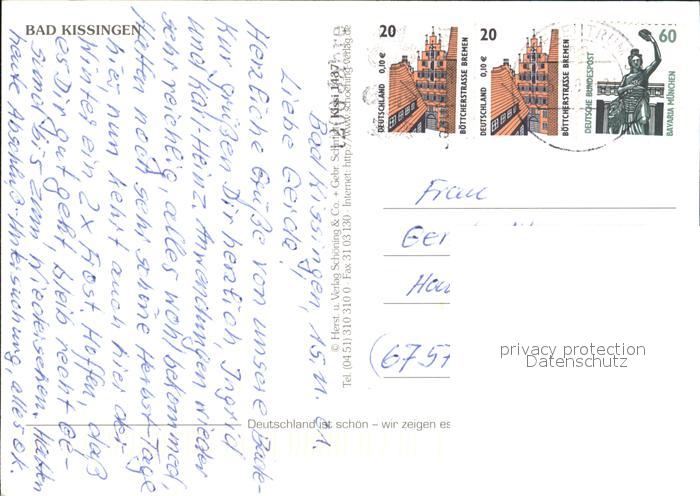 BAD KISSINGEN
Bad Kissingen, 15.11.01.
Liebe Gerda!
Herzliche Grüße von unserer Bade-
Kur grüßen Dir herzlich, Ingrid
und Karl Heinz. Anwendungen wieder
sehr reichlich, alles wohl bekommen,
Hatten noch sehr schöne Herbst-Tage
hier, nun kehrt auch hier der
Winter ein 2 x Frost. Hoffen, daß
es Dir gut geht, bleib recht ge-
sund bis zum Wiedersehen. Hatten
heute Abschluß-Untersuchung, alles ok.
© Herst. u. Verlag Schöning & Co. + Gebr. Schmidt
Tel. (04 51) 310 310 0 · Fax 31 03 130 · Internet: http://www.schoening-verlag.de
Kissi 1487
20
DEUTSCHLAND 0,10 €
BÖTTCHERSTRASSE BREMEN
20
DEUTSCHLAND 0,10 €
BÖTTCHERSTRASSE BREMEN
60
DEUTSCHE BUNDESPOST
BAVARIA MÜNCHEN
Frau
Ger
Hau
(6757
privacy protection
Datenschutz
Deutschland ist schön – wir zeigen es